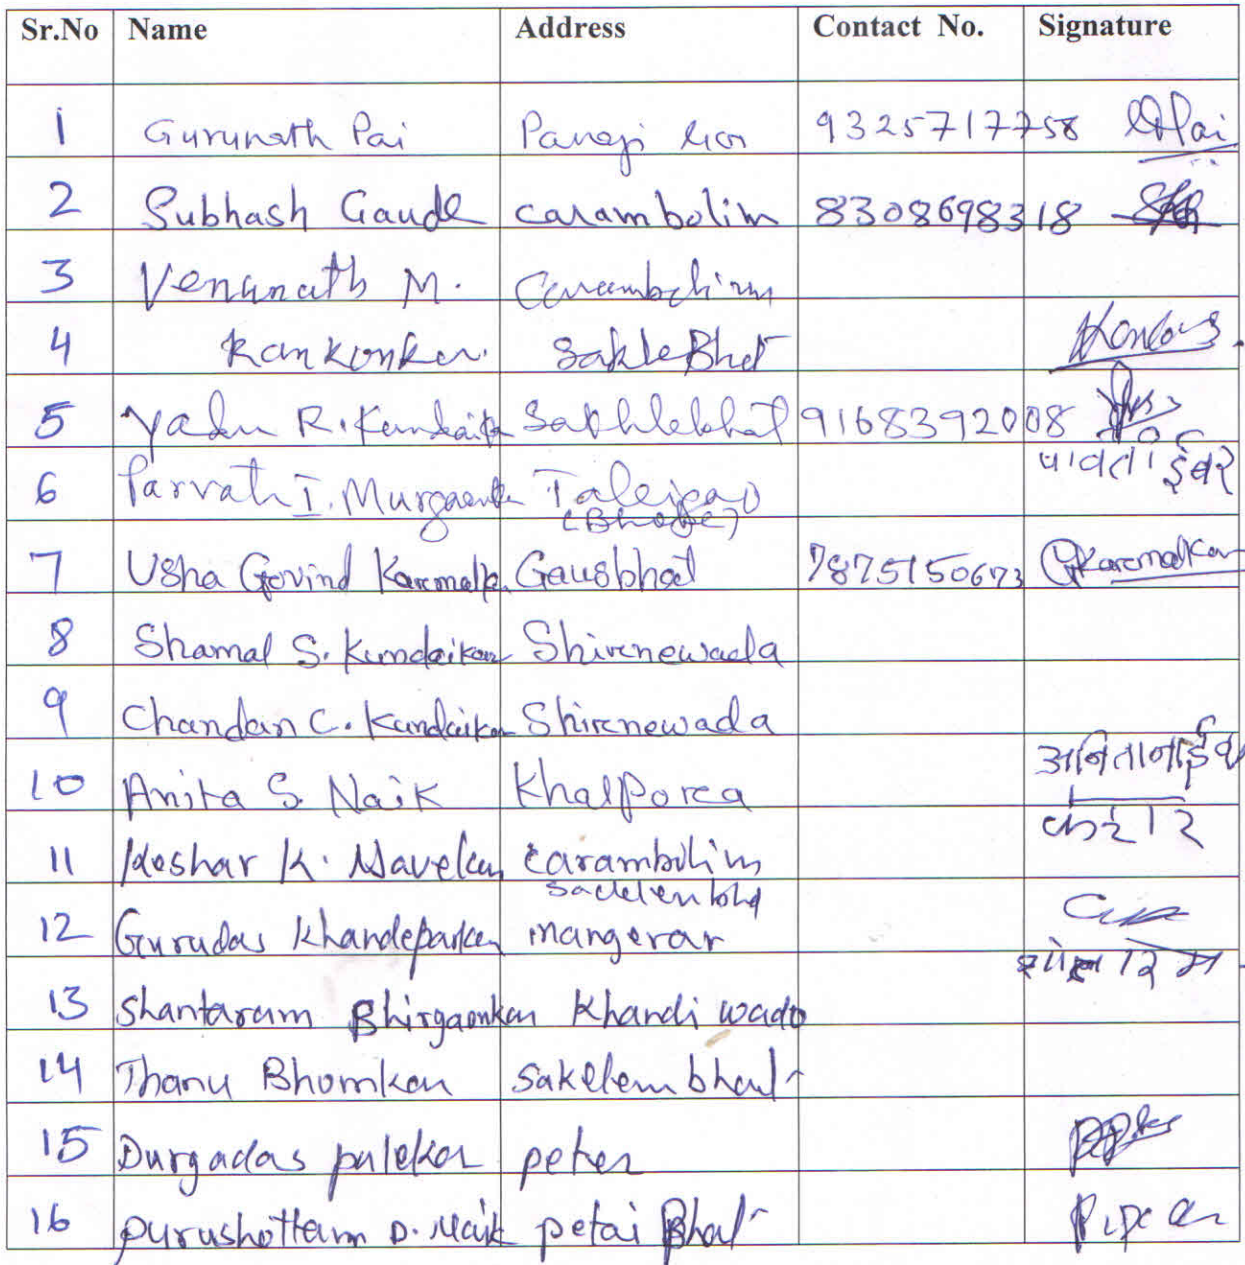 Sr.No Name Address Contact No. Signature
1 Gurunath Pai Panaji Goa 9325717758 Pai
2 Subhash Gaude carambolim 8308698318
3 Venunath M. Carambolim
4 Kankonkar. SakleBhat
5 Yadu R. Kundaikar Sakhlebhat 9168392008
6 Parvati I. Murgaonkar Taleigao
(Bhate)
7 Usha Govind Karmalkar Gausbhat 7875150673 Karmalkar
8 Shamal S. Kundaikar Shirenewada
9 Chandan C. Kundaikar Shirenewada
10 Anita S. Naik Khalporea अनिता नाईक
11 Keshar K. Navelkar carambolim
12 Gurudas Khandeparker mangerar
13 Shantaram Bhirgaonkar Khandi wado
14 Thanu Bhomkar sakelem bhat
15 Durgadas palekar peter
16 purushottam D. Naik petai Bhat